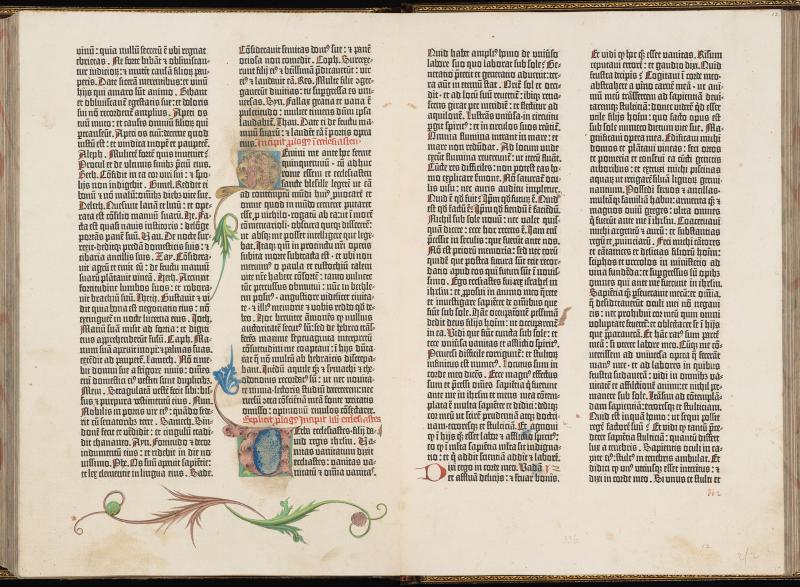 vinū: quia nullū secretū ē ubi regnat
ebrietas. Ne forte bibāt et obliviscan-
tur iudicioꝝ: et mutēt causā filioꝝ pau-
peris. Date siceram merentibus: et vinū
hijs qui amaro sūt animo. Bibant
et obliviscant egestatis sue: et doloris
sui nō recordent amplius. Aperi os
tuū muto: et causis omniū filioꝝ qui
pertranseūt. Aperi os tuū: decerne quod
iustū est: et vindica inopē et pauperē.
Aleph. Mulierē fortē quis inveniet?
Procul et de ultimis finibꝫ preciū eius.
Beth. Cōfidit in ea cor viri sui: et spo-
lijs non indigebit. Gimel. Reddet ei
bonū et nō malū: omnibꝫ diebꝫ vite sue.
Deleth. Quesivit lanā et linū: et ope-
rata est cōsilio manuū suarū. He. Fa-
cta est quasi navis institoris: de lōge
portās panē suū. Vau. De nocte sur-
rexit: deditqꝫ predā domesticis suis: et
cibaria ancillis suis. Zai. Cōsidera-
vit agrū et emit eū: de fructu manuū
suarū plātavit vineā. Heth. Accinxit
fortitudine lumbos suos: et robora-
vit brachiū suū. Theth. Gustavit et vi-
dit quia bona est negociatio eius: nō
extinguet in nocte lucerna eius. Joth.
Manū suā misit ad fortia: et digiti
eius apprehenderūt fusū. Caph. Ma-
num suā aperuit inopi: et palmas suas
extēdit ad pauperē. Lameth. Nō time-
bit domui sue a frigoribꝫ nivis: omēs
eni domestici eiꝰ vestiti sunt duplicibꝫ.
Mem. Stragulatā vestē fecit sibi: bis-
sus et purpura vestimentū eius. Nun.
Nobilis in portis vir eiꝰ: quādo sede-
rit cū senatoribꝫ terre. Samech. Sin-
donē fecit et vēdidit: et cingulū tradi-
dit chananeo. Ayn. Fortitudo et decor
indumentū eius: et ridebit in die no-
vissimo. Phe. Os suū aperuit sapiētie:
et lex clementie in lingua eius. Sade.
Cōsideravit semitas domꝰ sue: et panē
ociosa non comedit. Coph. Surrexe-
runt filij eiꝰ et beatissimā p̄dicaverūt: vir
eiꝰ et laudavit eā. Res. Multe filie ꝯgre-
gaverūt divitias: tu supgressa es uni-
versas. Syn. Fallax gratia et vana ē
pulcritudo: mulier timens dūm ipsa
laudabit̄. Thau. Date ei de fructu ma-
nuū suarū: et laudēt eā ī portis opera
eius. Incipit ꝓlogꝰ ī ecclesiasten
Memini me ante hoc ferme
quinquenniū: cū adhuc
rome essem et ecclesiasten
sancte blesille legerē ut eā
ad contemptū mūdi huiꝰ ꝓvocarē et
omne quod in mūdo cerneret putaret
esse ꝓ nichilo: rogatū ab ea: ut ī morē
cōmentarioli obscura queqꝫ dissererē:
ut absqꝫ me posset intelligere que lege-
bat. Itaqꝫ qm̄ in procīctu nr̄i operis
subita morte subtracta est: et ubi non
meruimꝰ o paula et eustochiū talem
vite nr̄e habere cōsortē: tanto vulnere
tūc percussus obmutui: nūc in bethle-
em positꝰ angustiore videlicet civita-
te et illiꝰ memorie et vobis reddo qd̄ de-
beo. Hoc breviter āmonēs qꝫ nullius
auctoritatē secutꝰ sū: sed de hebreo trās-
ferēs maxime septuaginta interpretū
cōsuetudini me coaptavi: ī hijs dūta-
xat q̄ nō multū ab hebraicis discrepa-
bant. Interdū aquile qꝫ et symachi et the-
odotionis recordatꝰ sū: ut nec novita-
te nimia lectoris studiū deterrerem: nec
rursū ꝯtra cōscientiā meā fonte veritatis
omisso: opinionū rivulos cōsectarer.
Explicit ꝓlogꝰ Incipit lib̄ ecclesiastes
Verba ecclesiastes filij da-
vid regis ihrl̄m. Va-
nitas vanitatum dixit
ecclesiastes: vanitas va-
nitatū et omnia vanitas.
Quid habet ampliꝰ homo de universo
labore suo quo laborat sub sole? Ge-
neratio p̄terit et generatio advenit: ter-
ra aūt in eternū stat. Orit̄ sol et occi-
dit: et ad locū suū revertit̄: ibiqꝫ rena-
scens girat per meridiē: et flectitur ad
aquilonē. Lustrās universa in circuitu
ꝑgit spiritꝰ: et in circulos suos revertit̄.
Omnia flumina intrant in mare: et
mare non redūdat. Ad locum unde
exeunt flumina revertunt̄: ut iterū fluāt.
Cūcte res difficiles: non potest eas ho-
mo explicare sermone. Nō saturat̄ ocu-
lis visu: nec auris auditu impletur.
Quid ē qd̄ fuit? Ipm̄ qd̄ futurū ē. Quid
est qd̄ factū ē? Ipm̄ qd̄ faciendū ē.
Nichil sub sole novū: nec valet quis-
quā dicere: ecce hoc recens ē. Jam eni
precessit in seculis: que fuerūt ante nos.
Nō est priorū memoria: sed nec eorū
quidē que postea futura sūt erit recor-
datio apud eos qui futuri sūt ī novis-
simo. Ego ecclesiastes fui rex israhel in
ihrl̄m: et ꝓposui in animo meo q̄rere
et investigare sapienter de omnibus que
fiūt sub sole. Hāc occupationē pessimā
dedit deus filijs hoīm: ut occuparent̄
in ea. Vidi que fiūt cuncta sub sole: et
ecce universa vanitas et afflictio spiritꝰ.
Perversi difficile corrigunt̄: et stultorꝫ
infinitus est numerꝰ. Locutus sum in
corde meo dicēs. Ecce magnꝰ effectus
sum et p̄cessi omēs sapientia q̄ fuerunt
ante me in ihrl̄m: et mens mea contem-
plata ē multa sapienter et didici: dediqꝫ
cor meū ut scirē prudentiā atqꝫ doctri-
nam: erroresqꝫ et stulticiā. Et agnovi
qꝫ ī hijs qꝫ esset labor et afflictio spiritꝰ:
eo qꝫ ī multa sapientia multa sit indigna-
tio: et q̄ addit scientiā addit et laborē.
Dixi ego in corde meo. Vadā
et affluā delicijs: et fruar bonis.
Et vidi qꝫ hoc qꝫ esset vanitas. Risum
reputavi errorē: et gaudio dixi. Quid
frustra deciperis? Cogitavi ī corde meo
abstrahere a vino carnē meā: ut ani-
mū meū trāsferrem ad sapientiā: devi-
taremqꝫ stulticiā: donec viderē qd̄ esset
utile filijs hoīm: quo facto opus est
sub sole numero dierum vite sue. Ma-
gnificavi opera mea. Edificavi michi
domos et plātavi vineas: feci ortos
et pomeria et consevi ea cūcti generis
arboribus: et extruxi michi piscinas
aquaꝝ ut irrigarē silvā lignoꝝ germi-
nantium. Possedi servos et ancillas:
multāqꝫ familiā habui: armenta qꝫ et
magnos oviū greges: ultra omnes
q̄ fuerūt ante me ī ihrl̄m. Coacervavi
michi argentū et aurū: et substantias
regū et ꝓvinciarū. Feci michi cātores
et cātatrices et delicias filiorū hoīm:
sciphos et urceolos in ministerio ad
vina fundēda: et supgressus sū opibꝫ
omnes qui ante me fuerunt in ihrl̄m.
Sapientia qꝫ perseveravit mecū: et omīa
q̄ desideraverūt oculi mei nō negavi
eis: nec prohibui cor meū quin omni
voluptate frueret̄: et oblectaret se ī hijs
que p̄paraverā. Et hāc ratꝰ sum partē
meā: si uterer labore meo. Cūqꝫ me cō-
vertissem ad universa opera q̄ fecerāt
manꝰ mee: et ad labores in quibus
frustra sudaverā: vidi in omnibꝫ va-
nitatē et afflictionē animi: et nichil per-
manere sub sole. Trāsivi ad cōtemplā-
dam sapientiā: erroresqꝫ et stulticiam.
Quid est inquā homo: ut sequi posset
regē factorē suū? Et vidi qꝫ tantū pre-
cederet sapiētia stulticiā: quantū differt
lux a tenebris. Sapientis oculi in ca-
pite eiꝰ: stultꝰ in tenebris ambulat. Et
didici qꝫ unꝰ utriusqꝫ esset interitus: et
dixi in corde meo. Si unus et stulti et